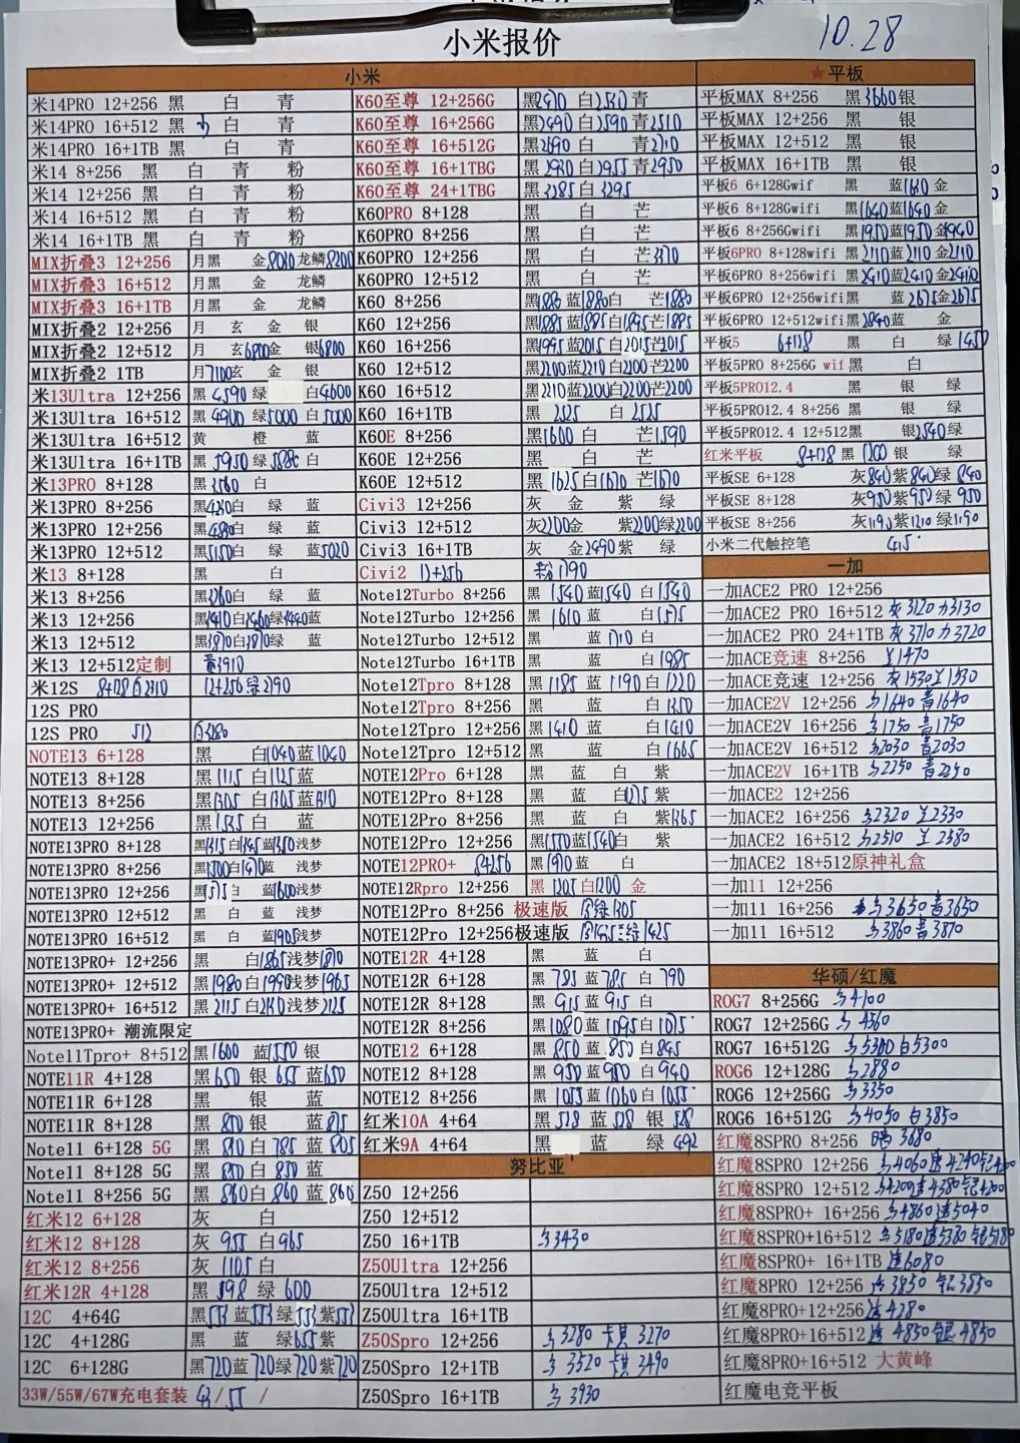 小米报价
10.28
小米
米14PRO 12+256 黑 白 青
米14PRO 16+512 黑 白 青
米14PRO 16+1TB 黑 白 青
米14 8+256 黑 白 青 粉
米14 12+256 黑 白 青 粉
米14 16+512 黑 白 青 粉
米14 16+1TB 黑 白 青 粉
MIX折叠3 12+256 月黑 金 龙鳞8200
MIX折叠3 16+512 月黑 金 龙鳞
MIX折叠3 16+1TB 月黑 金 龙鳞
MIX折叠2 12+256 月 玄 金 银
MIX折叠2 12+512 月 玄6800金 银6800
MIX折叠2 1TB 月7100玄 金 银
米13Ultra 12+256 黑 4590 绿 白4600
米13Ultra 16+512 黑 4900 绿5000 白 5000
米13Ultra 16+512 黄 橙 蓝
米13Ultra 16+1TB 黑 5950 绿 白
米13PRO 8+128 黑 白
米13PRO 8+256 黑 白 绿 蓝
米13PRO 12+256 黑 白 绿 蓝
米13PRO 12+512 黑5150白 绿 蓝5020
米13 8+128 黑 白
米13 8+256 黑 白 绿 蓝
米13 12+256
米13 12+512 黑 白 绿 蓝
米13 12+512定制
米12S 8+128白2110 12+256绿2190
12S PRO
12S PRO 512
NOTE13 6+128 黑 白1040蓝1040
NOTE13 8+128 黑1115 白1125蓝
NOTE13 8+256 黑1305 白1305蓝1310
NOTE13 12+256 黑1535白 蓝
NOTE13PRO 8+128 黑1315白1345蓝1350浅梦
NOTE13PRO 8+256 黑1500白1470蓝 浅梦
NOTE13PRO 12+256 黑1575白 蓝1600浅梦
NOTE13PRO 12+512 黑 白 蓝 浅梦
NOTE13PRO 16+512 黑 白 蓝1905浅梦
NOTE13PRO+ 12+256 黑 白1865浅梦1870
NOTE13PRO+ 12+512 黑1980白1990浅梦1965
NOTE13PRO+ 16+512 黑 2115白2130浅梦2125
NOTE13PRO+ 潮流限定
Note11Tpro+ 8+512 黑1600 蓝1550 银
NOTE11R 4+128 黑 650 银 655 蓝650
NOTE11R 6+128 黑 银 蓝
NOTE11R 8+128 黑 850 银 蓝815
Note11 6+128 5G 黑 810 白 785 蓝 805
Note11 8+128 5G 黑 850白 850 蓝
Note11 8+256 5G 黑 860白 860 蓝 860
红米12 6+128 灰 白
红米12 8+128 灰 955 白965
红米12 8+256 灰 1105 白
红米12R 4+128 黑 598 绿 600
12C 4+64G 黑553蓝553绿553紫553
12C 4+128G 黑 蓝 绿655紫
12C 6+128G 黑720蓝720绿720紫720
33W/55W/67W充电套装 43/55 /
K60至尊 12+256G 黑2470 白2510青
K60至尊 16+256G 黑2490白2590青2510
K60至尊 16+512G 黑2690白 青2710
K60至尊 16+1TBG 黑 2930白2955青2950
K60至尊 24+1TBG 黑 3285白3295
K60PRO 8+128 黑 白 芒
K60PRO 8+256 黑 白 芒
K60PRO 12+256 黑 白 芒
K60PRO 12+512 黑 白 芒
K60 8+256 黑1885蓝1880白 芒1880
K60 12+256 黑1885蓝1885白1895芒1885
K60 16+256 黑1995蓝2015白2015芒2015
K60 12+512 黑2200蓝2210白2200芒2200
K60 16+512 黑2210蓝2200白2200芒2200
K60 16+1TB 黑 2525 白 2525
K60E 8+256 黑1600白 芒1590
K60E 12+256 黑 白 芒
K60E 12+512 黑1625白1670芒1670
Civi3 12+256 灰 金 紫 绿
Civi3 12+512 灰2200金 紫2200绿2200
Civi3 16+1TB 灰 金2490紫 绿
Civi2 12+256 粉1790
Note12Turbo 8+256 黑 1540 蓝1540 白1540
Note12Turbo 12+256 黑 1610 蓝 白1575
Note12Turbo 12+512 黑 蓝1710 白
Note12Turbo 16+1TB 黑 蓝 白1985
Note12Tpro 8+128 黑 1185 蓝 1190 白1220
Note12Tpro 8+256 黑 蓝 白1350
Note12Tpro 12+256 黑 1410 蓝 白1410
Note12Tpro 12+512 黑 蓝 白1665
NOTE12Pro 6+128 黑 蓝 白 紫
NOTE12Pro 8+128 黑 蓝 白1275紫
NOTE12Pro 8+256 黑 蓝 白 紫1365
NOTE12Pro 12+256 黑1550蓝1540白 紫
NOTE12PRO+ 8+256 黑1910蓝 白
NOTE12Rpro 12+256 黑 1205白1200 金
NOTE12Pro 8+256 极速版
NOTE12Pro 12+256极速版
NOTE12R 4+128 黑 蓝 白
NOTE12R 6+128 黑 785 蓝 785 白 790
NOTE12R 8+128 黑 915 蓝 915 白
NOTE12R 8+256 黑1080蓝 1095白1075
NOTE12 6+128 黑 850 蓝 850 白845
NOTE12 8+128 黑 950 蓝 950 白 940
NOTE12 8+256 黑 1055蓝 1060白1055
红米10A 4+64 黑 528 蓝 528 银 528
红米9A 4+64 黑 蓝 绿 492
努比亚
Z50 12+256
Z50 12+512
Z50 16+1TB 3430
Z50Ultra 12+256
Z50Ultra 12+512
Z50Ultra 16+1TB
Z50Spro 12+256 3280 卡其 3270
Z50Spro 12+1TB 3520 卡其 3490
Z50Spro 16+1TB 3930
★平板
平板MAX 8+256 黑3660银
平板MAX 12+256 黑 银
平板MAX 12+512 黑 银
平板MAX 16+1TB 黑 银
平板6 6+128Gwif 黑 蓝1630金
平板6 8+128Gwifi 黑1640蓝1640 金
平板6 8+256Gwifi 黑1950蓝1950金1940
平板6PRO 8+128wifi 黑2110蓝2110金2110
平板6PRO 8+256wifi 黑2410蓝2410金2410
平板6PRO 12+256wifi黑 蓝2675金2675
平板6PRO 12+512wifi黑2840蓝 金
平板5 6+128 黑 白 绿1450
平板5PRO 8+256G wif黑 白
平板5PRO12.4 黑 银 绿
平板5PRO12.4 8+256 黑 银 绿
平板5PRO12.4 12+512黑 银2540绿
红米平板 8+128黑 1200 银 绿
平板SE 6+128 灰840紫840绿 840
平板SE 8+128 灰950紫950绿 950
平板SE 8+256 灰1190紫1210绿1190
小米二代触控笔 415
一加
一加ACE2 PRO 12+256
一加ACE2 PRO 16+512 灰3120 3130
一加ACE2 PRO 24+1TB 灰3710 3720
一加ACE竞速 8+256 1470
一加ACE竞速 12+256 灰1530 1530
一加ACE2V 12+256 1640 青1640
一加ACE2V 16+256 1750 青1750
一加ACE2V 16+512 2030 青2030
一加ACE2V 16+1TB 2250 青2250
一加ACE2 12+256
一加ACE2 16+256 2320 2330
一加ACE2 16+512 2510 2380
一加ACE2 18+512原神礼盒
一加11 12+256
一加11 16+256 3650 青3650
一加11 16+512 3860青3870
华硕/红魔
ROG7 8+256G 4100
ROG7 12+256G 4560
ROG7 16+512G 5300白5300
ROG6 12+128G 2880
ROG6 12+256G 3350
ROG6 16+512G 4050 白3850
红魔8SPRO 8+256 3680
红魔8SPRO 12+256 4060
红魔8SPRO 12+512 4200
红魔8SPRO+ 16+256 4860透5040
红魔8SPRO+16+512
红魔8SPRO+ 16+1TB 透6080
红魔8PRO 12+256 3830 银3850
红魔8PRO+12+256 透4280
红魔8PRO+16+512 透 4850 银4850
红魔8PRO+16+512 大黄蜂
红魔电竞平板